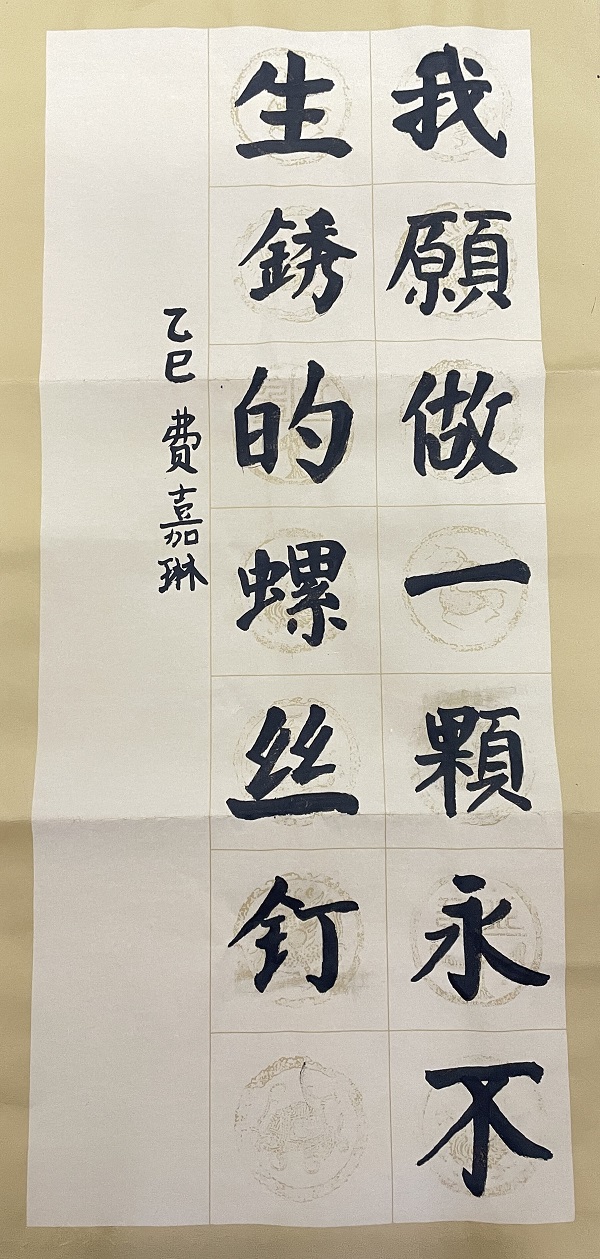 我願做一顆永不
生銹的螺丝釘
乙巳 費嘉琳